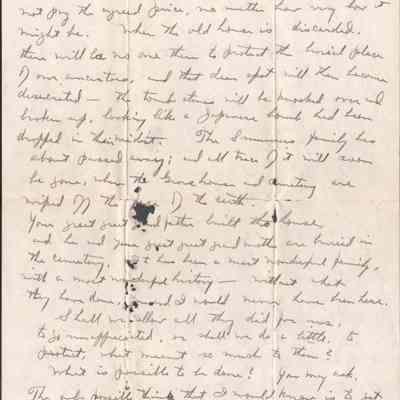 not pay the agreed price, no matter how very low it
might be. When the old house is discarded,
there will be no one there to protect the burial place
of our ancestors, and that dear spot will then become
desecrated — the tomb stones will be knocked over and
broken up, looking like a Japanese bomb had been
dropped in their midst. The Summers family has
about passed away; and all trace of it will soon
be gone, when the house and cemetery are
wiped off the of the earth.
Your great great father built the house,
and he and your great great grand mother are buried in
the cemetery. It has been a most wonderful family,
with a most wonderful history — without what
they have done, and I would never have been here.
Shall we allow all they did for us,
to go unappreciated, or shall we do a little, to
protect, what meant so much to them?
What is possible to be done? You may ask.
The only possible thing that I would know is to get